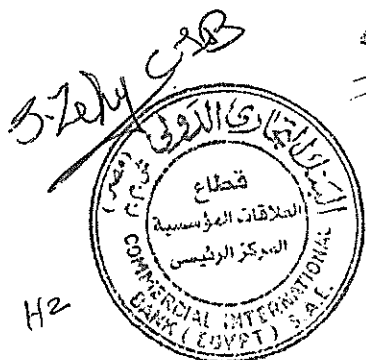 البنك التجاري الدولي
(مصر) ش.م.م
قطاع
العلاقات المؤسسية
المركز الرئيسى
COMMERCIAL INTERNATIONAL
BANK (EGYPT) S.A.E.
H2